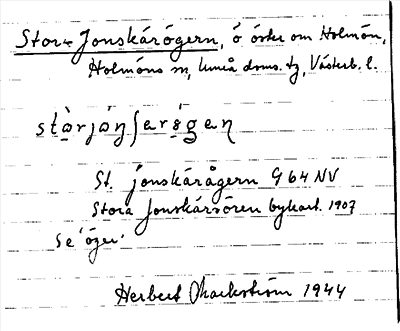 Stora Jonskärögern, ö öster om Holmön,
Holmöns sn, Umeå doms. tg, Västerb. l.
St. Jonskärågern G 64 NV
Stora Jonskärsören bykart. 1907
Se 'öger'.
Herbert Markström 1944